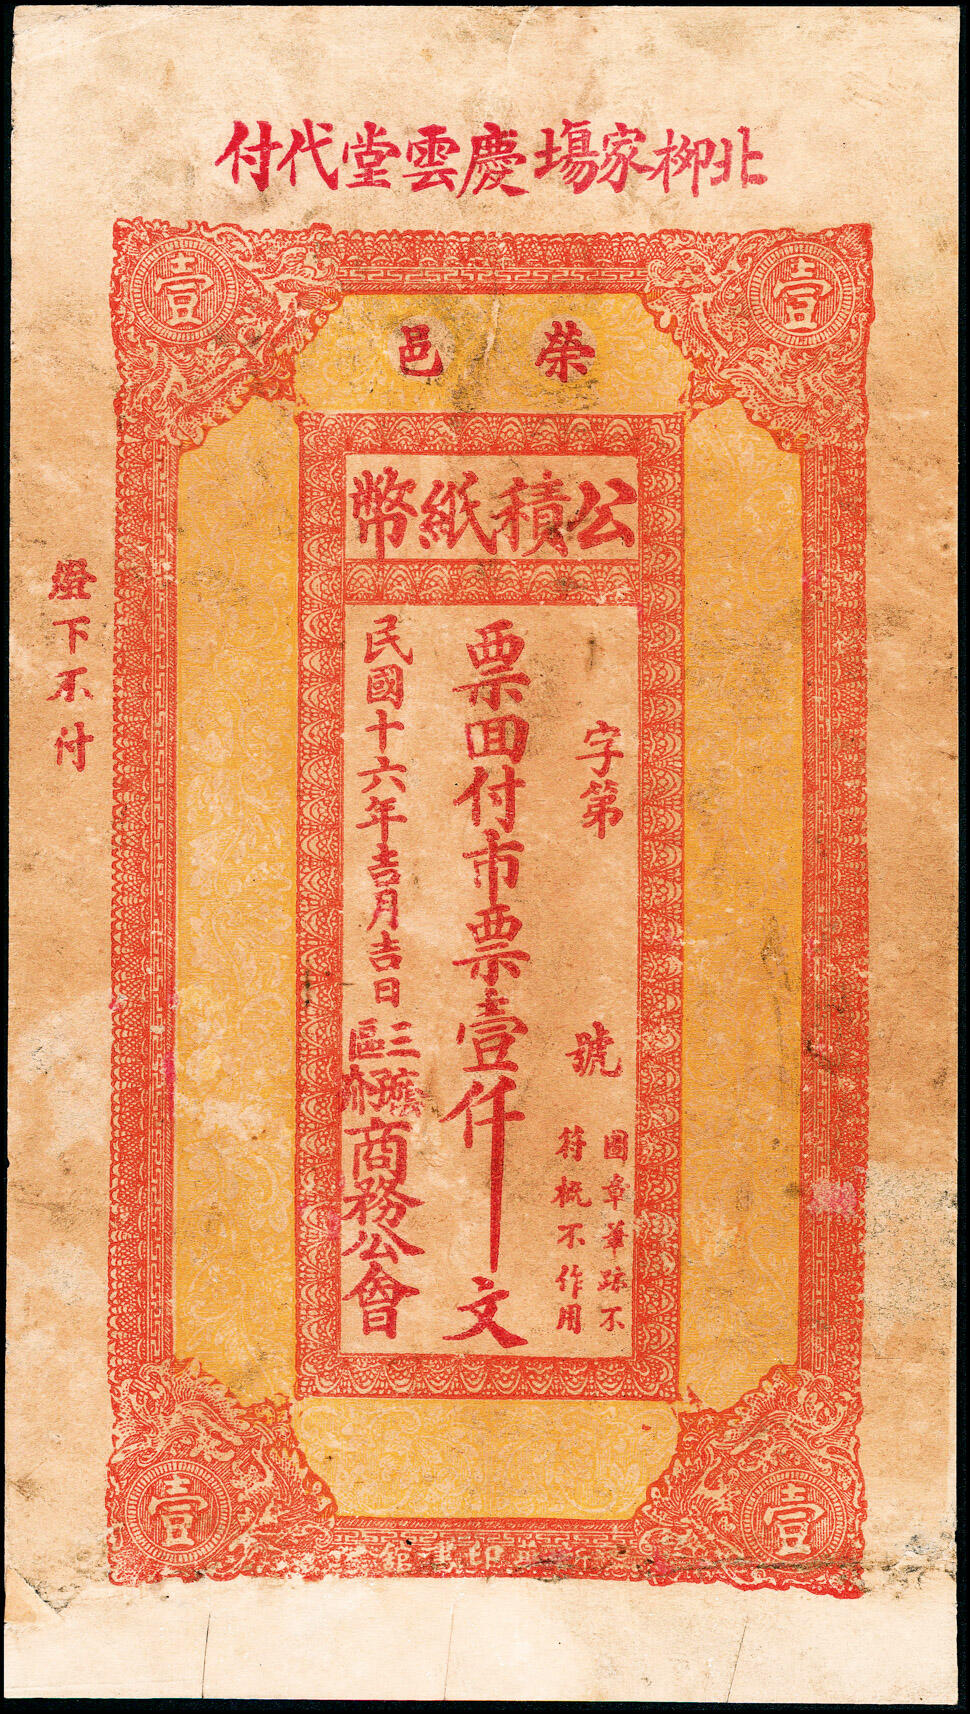 北柳家塲慶雲堂代付
壹
壹
榮邑
公積紙幣
字第
號
圖章筆跡不
符概不作用
票回付市票壹仟文
民國十六年吉月吉日
三區
商務公會
燈下不付
壹
壹
印書館